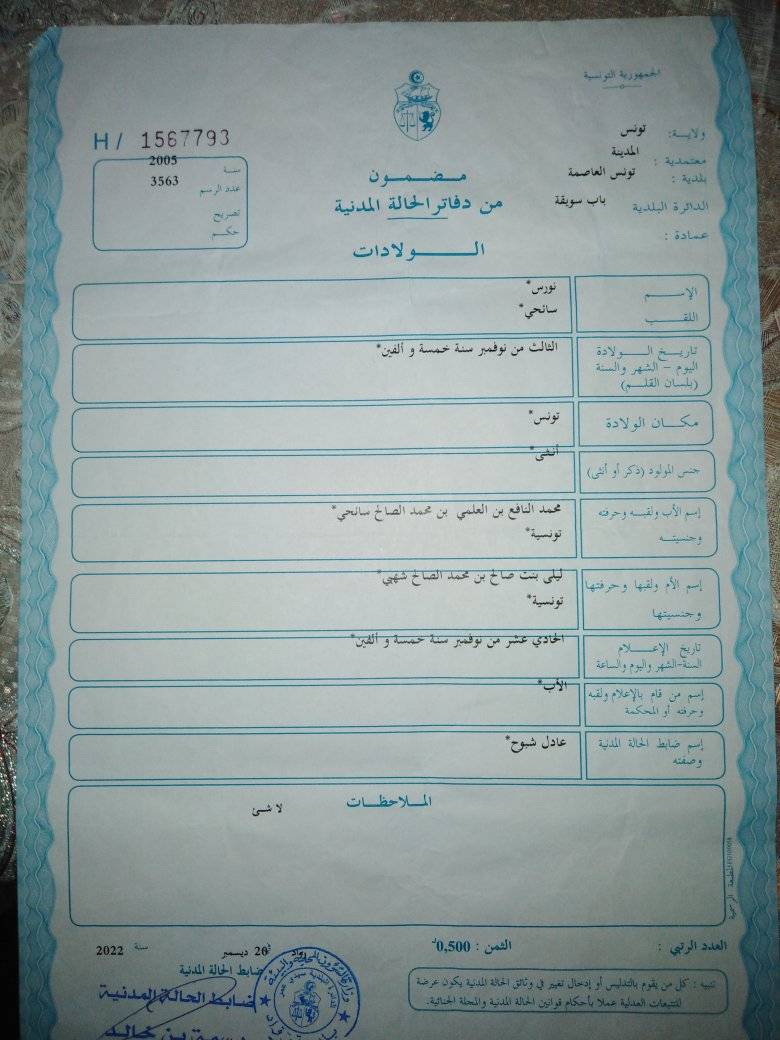 الجمهورية التونسية
ولاية: تونس
معتمدية : المدينة
بلدية : تونس العاصمة
الدائرة البلدية باب سويقة
عمادة :
H/ 1567793
سنة 2005
عدد الرسم 3563
تصريح
حكم
مضمون
من دفاتر الحالة المدنية
الولادات
الإسم نورس*
اللقب سائحي*
تاريخ الولادة الثالث من نوفمبر سنة خمسة و ألفين*
اليوم - الشهر والسنة
(بلسان القلم)
مكان الولادة تونس*
جنس المولود (ذكر أو أنثى) أنثى*
إسم الأب ولقبه وحرفته محمد النافع بن العلمي بن محمد الصالح سائحي*
وجنسيته تونسية*
إسم الأم ولقبها وحرفتها ليلى بنت صالح بن محمد الصالح شهبي*
وجنسيتها تونسية*
تاريخ الإعلام الحادي عشر من نوفمبر سنة خمسة و ألفين*
السنة-الشهر واليوم والساعة
إسم من قام بالإعلام ولقبه الأب*
وحرفته أو المحكمة
إسم ضابط الحالة المدنية عادل شبوح*
وصفته
الملاحظات
لا شئ
المطبعة الرسمية
العدد الرتبي :
الثمن : 0,500د
رواد في 26 ديسمبر سنة 2022
تنبيه : كل من يقوم بالتدليس أو إدخال تغيير في وثائق الحالة المدنية يكون عرضة
للتتبعات العدلية عملا بأحكام قوانين الحالة المدنية والمجلة الجنائية.
ضابط الحالة المدنية
ضابط الحالة المدنية
بن خالد